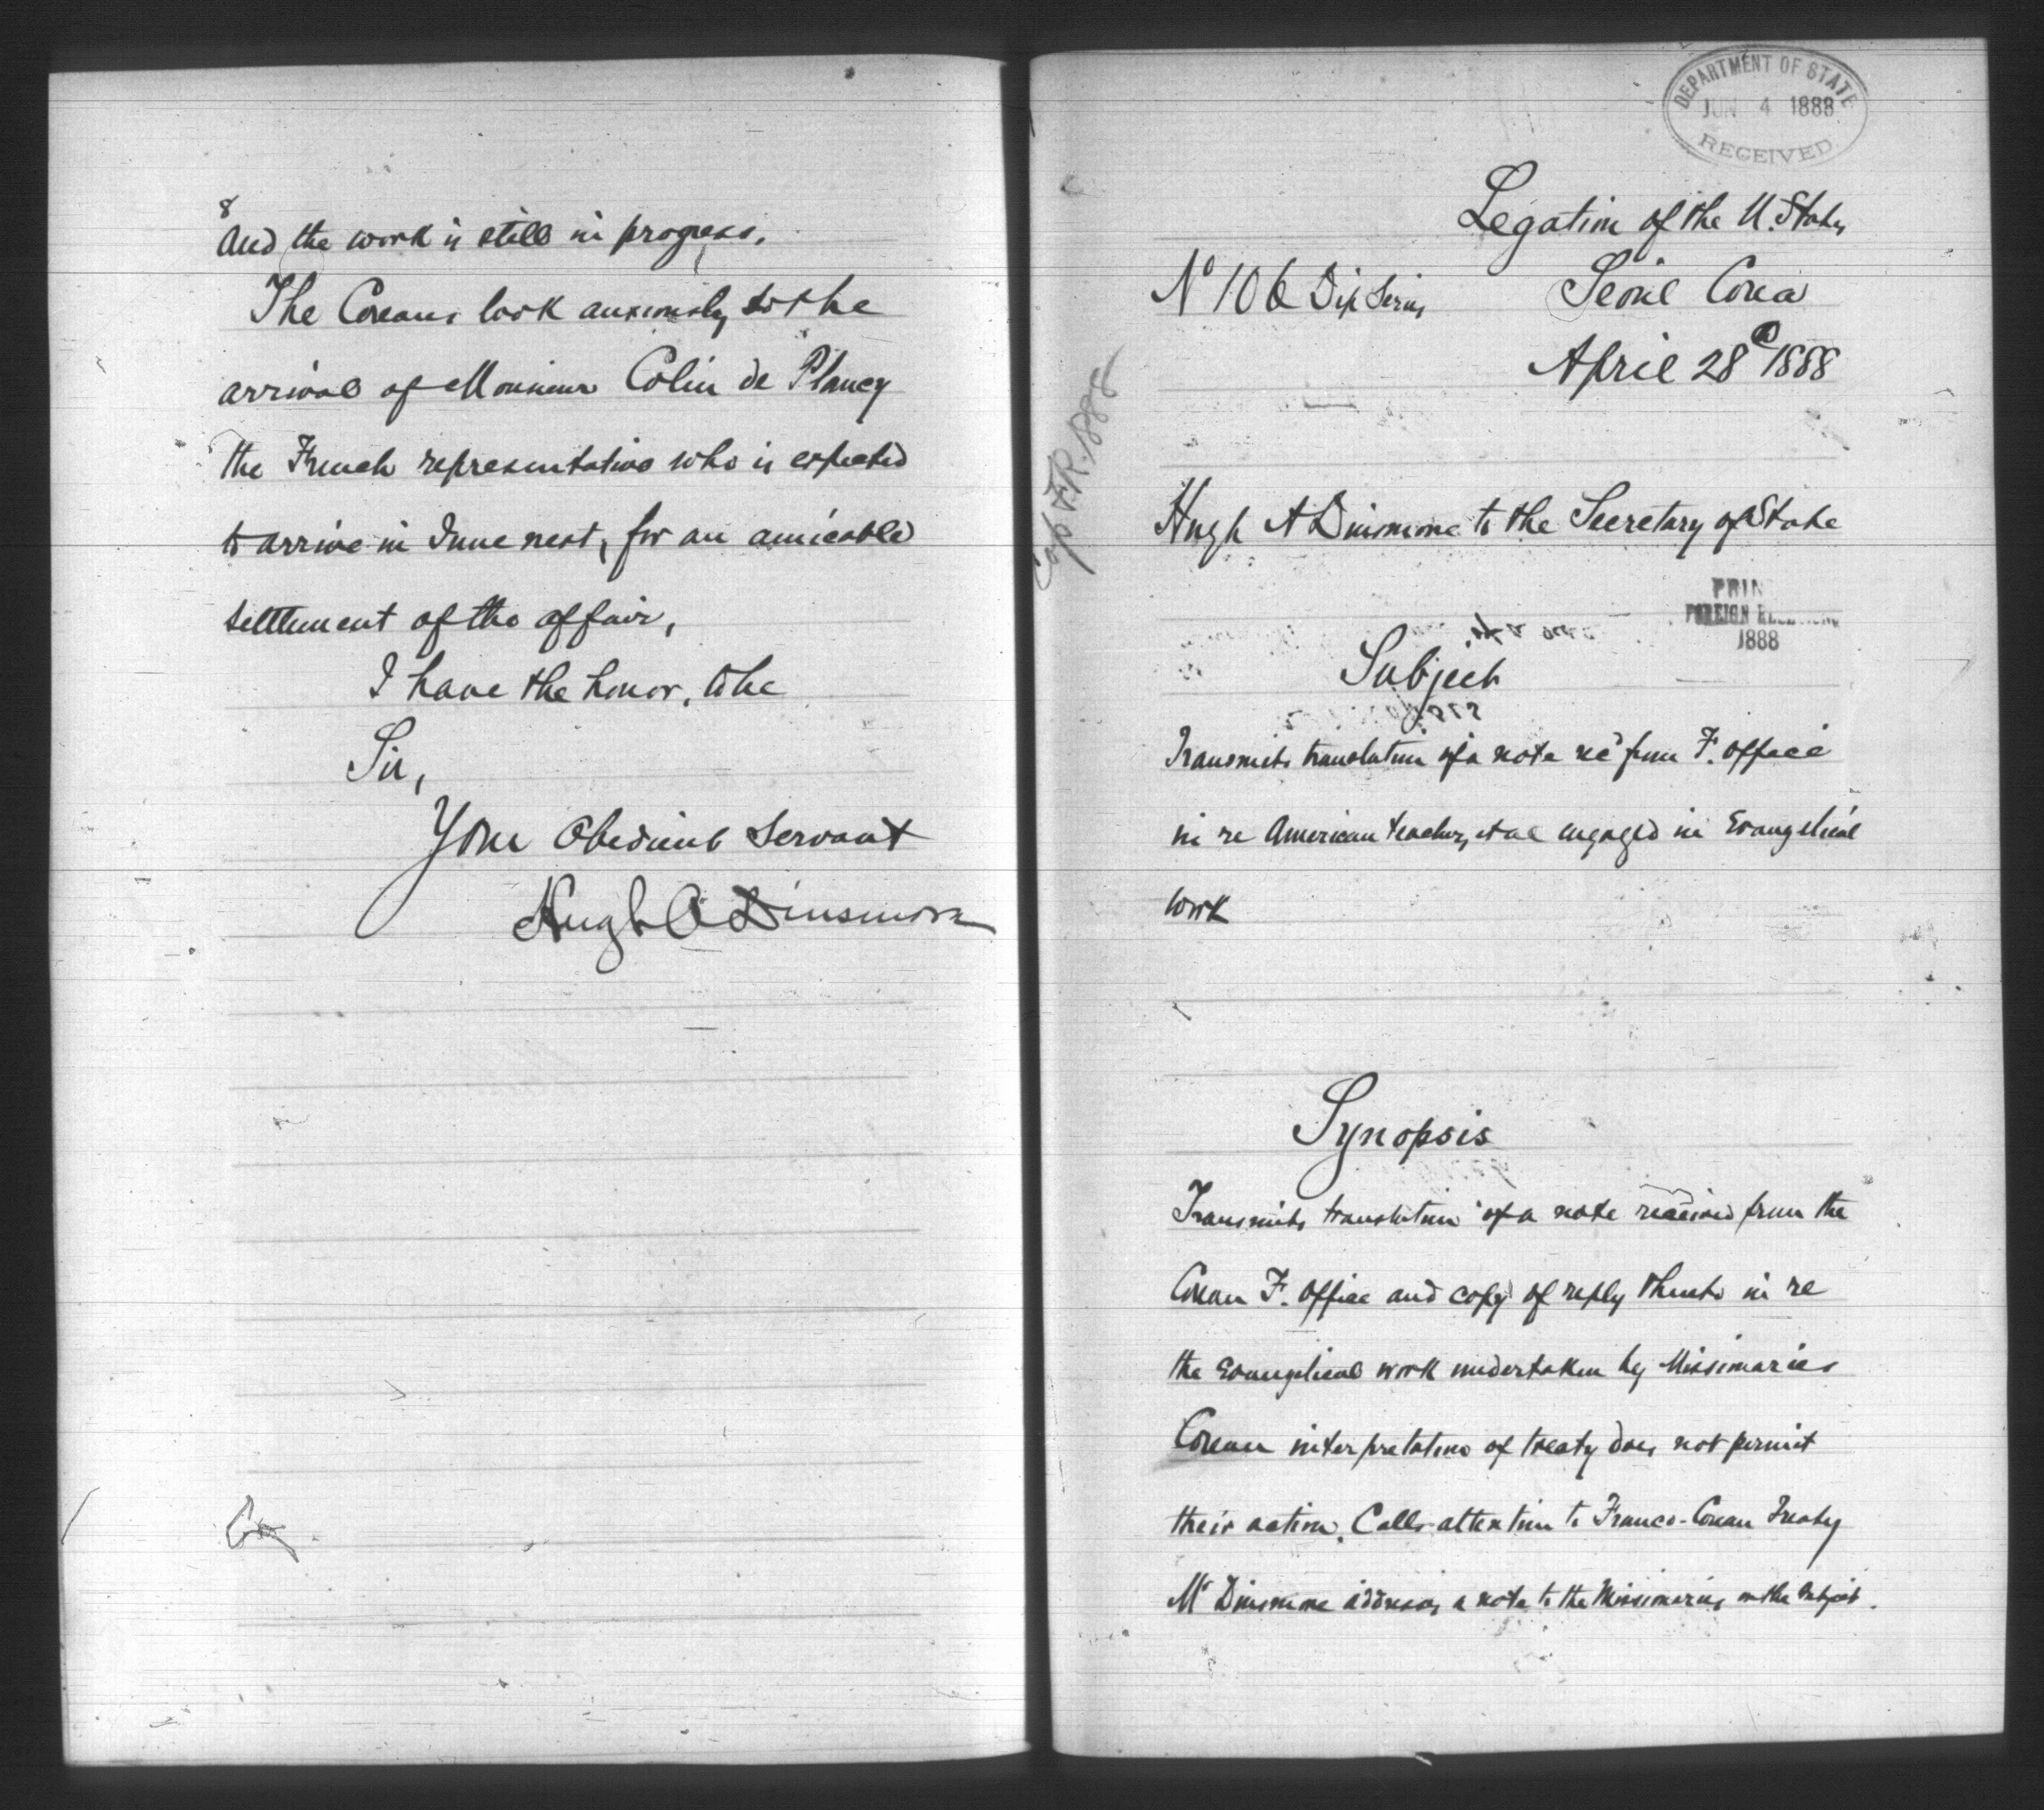 8
and the work is still in progress.
The Coreans look anxiously to the
arrival of Monsieur Colin de Plancy
the French representative who is expected
to arrive in June next, for an amicable
settlement of the affair,
I have the honor, to be
Sir,
Your Obedient Servant
Hugh A Dinsmore
DEPARTMENT OF STATE
JUN 4 1888
RECEIVED
Legation of the U. States
No 106 Dip Series Seoul Corea
April 28th 1888
Cop F.R. 1888
Hugh A Dinsmore to the Secretary of State
PRIN
FOREIGN RELATIONS
1888
Subject
Transmits translation of a note recd from F. Office
in re American teachers et al engaged in Evangelical
work
Synopsis
Transmits translation of a note received from the
Corean F. Office and copy of reply thereto in re
the Evangelical work undertaken by Missionaries
Corean interpretation of treaty does not permit
their action. Calls attention to Franco-Corean Treaty
Mr Dinsmore addresses a note to the Missionaries on the subject.